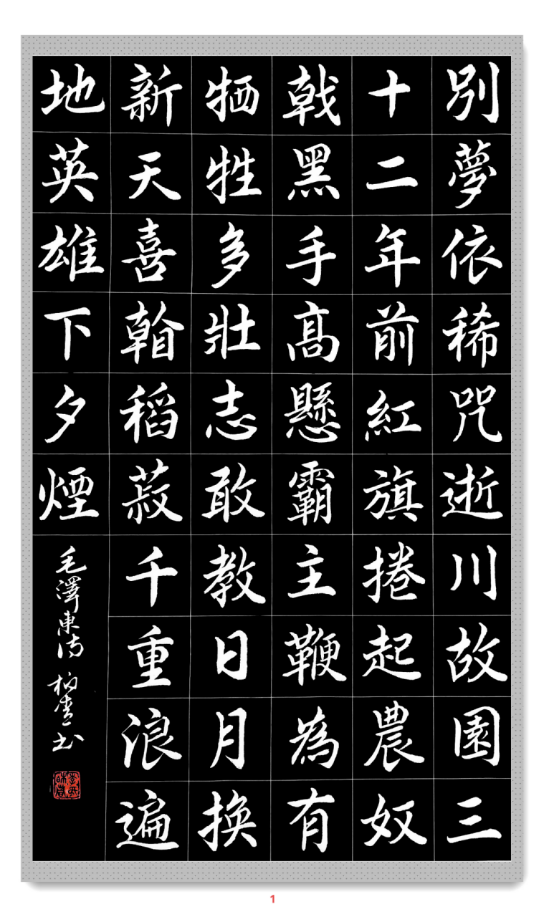 別夢依稀咒逝川故園三
十二年前紅旗捲起農奴
戟黑手髙懸霸主鞭為有
牺牲多壯志敢教日月換
新天喜看稻菽千重浪遍
地英雄下夕煙
毛澤東詩 柏青书
1